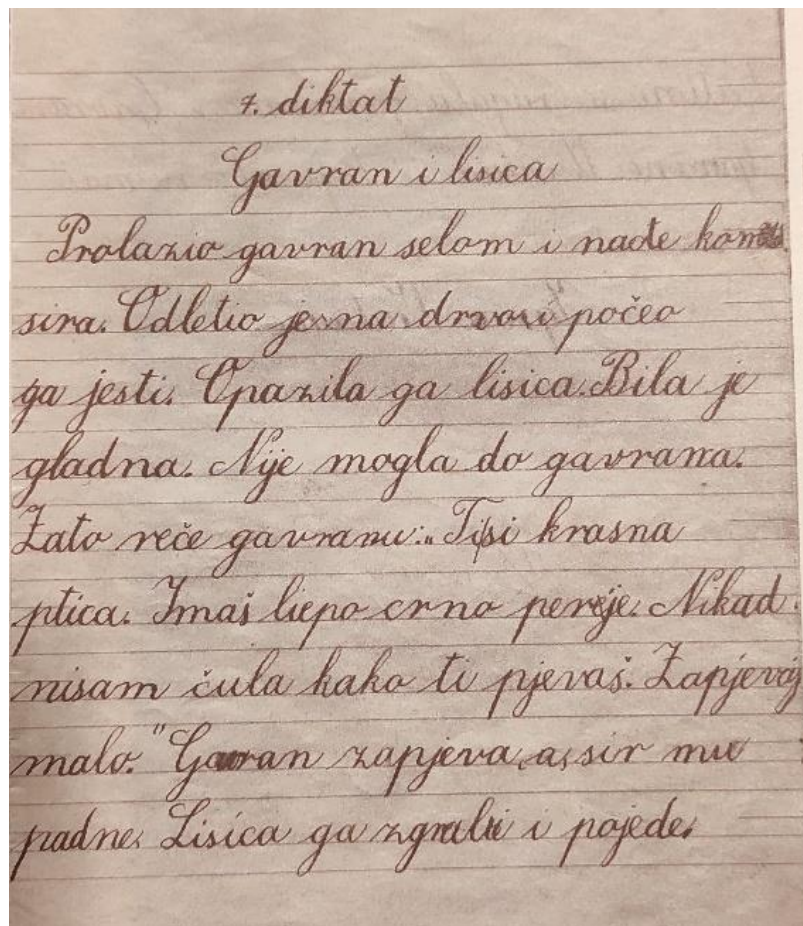 7. diktat
Gavran i lisica
Prolazio gavran selom i nađe kom
sira. Odletio je na drvo i počeo
ga jesti. Opazila ga lisica. Bila je
gladna. Nije mogla do gavrana.
Zato reče gavranu: „Ti si krasna
ptica. Imaš liepo crno perje. Nikad
nisam čula kako ti pjevaš. Zapjevaj
malo." Gavran zapjeva, a sir mu
padne. Lisica ga zgrabi i pojede.